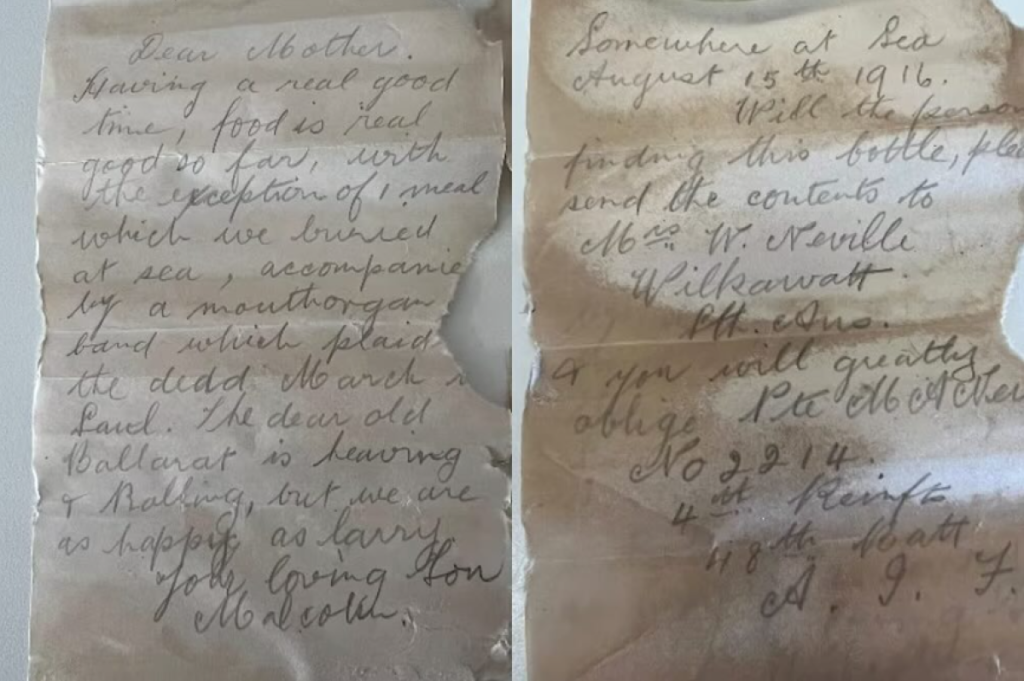 Dear Mother.
Having a real good
time, food is real
good so far, with
the exception of 1 meal
which we buried
at sea, accompanie
by a mouthorgan
band which plaid
the dedd March
Saul. The dear old
Ballarat is heaving
& Rolling, but we are
as happy as larry
Your loving Son
Malcolm.
Somewhere at Sea
August 15th 1916.
Will the person
finding this bottle, plea
send the contents to
Mrs W. Neville
Wilkawatt
Sth. Aus.
& you will greatly
oblige Pte M A Nev
No 2214.
4th Reinfts
48th Batt
A. I. F.